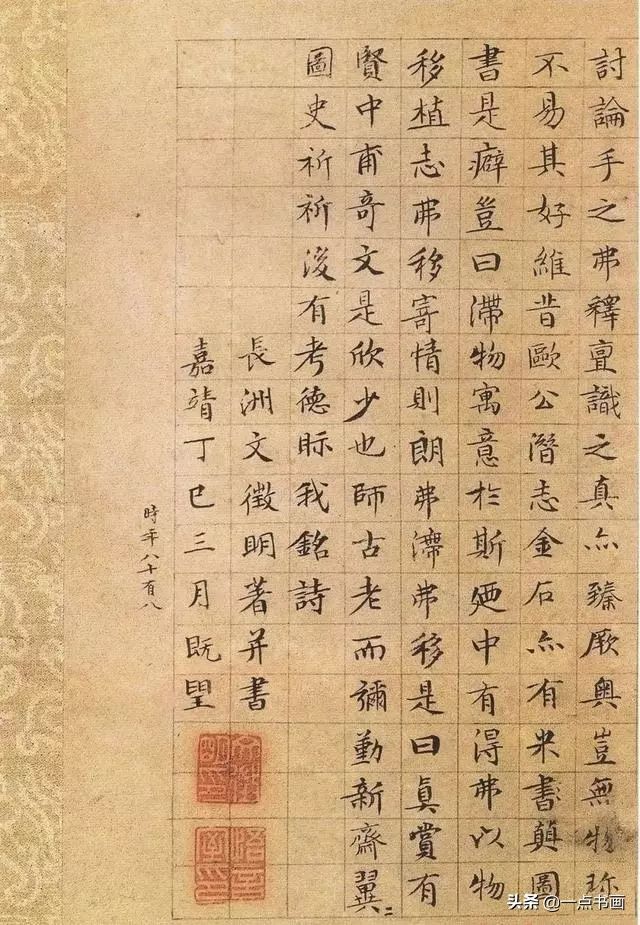 討論手之弗釋亶識之真亦臻厥奧豈無物珍
不易其好維昔歐公潛志金石亦有米書顛圖
書是癖豈曰滯物寓意於斯廼中有得弗以物
移植志弗移寄情則朗弗滯弗移是曰真賞有
賢中甫奇文是欣少也師古老而彌勤新齋翼〻
圖史祈祈後有考德眎我銘詩
長洲文徵明著并書
嘉靖丁巳三月既望
時年八十有八
文徵明印
悟言室印
头条 @一点书画